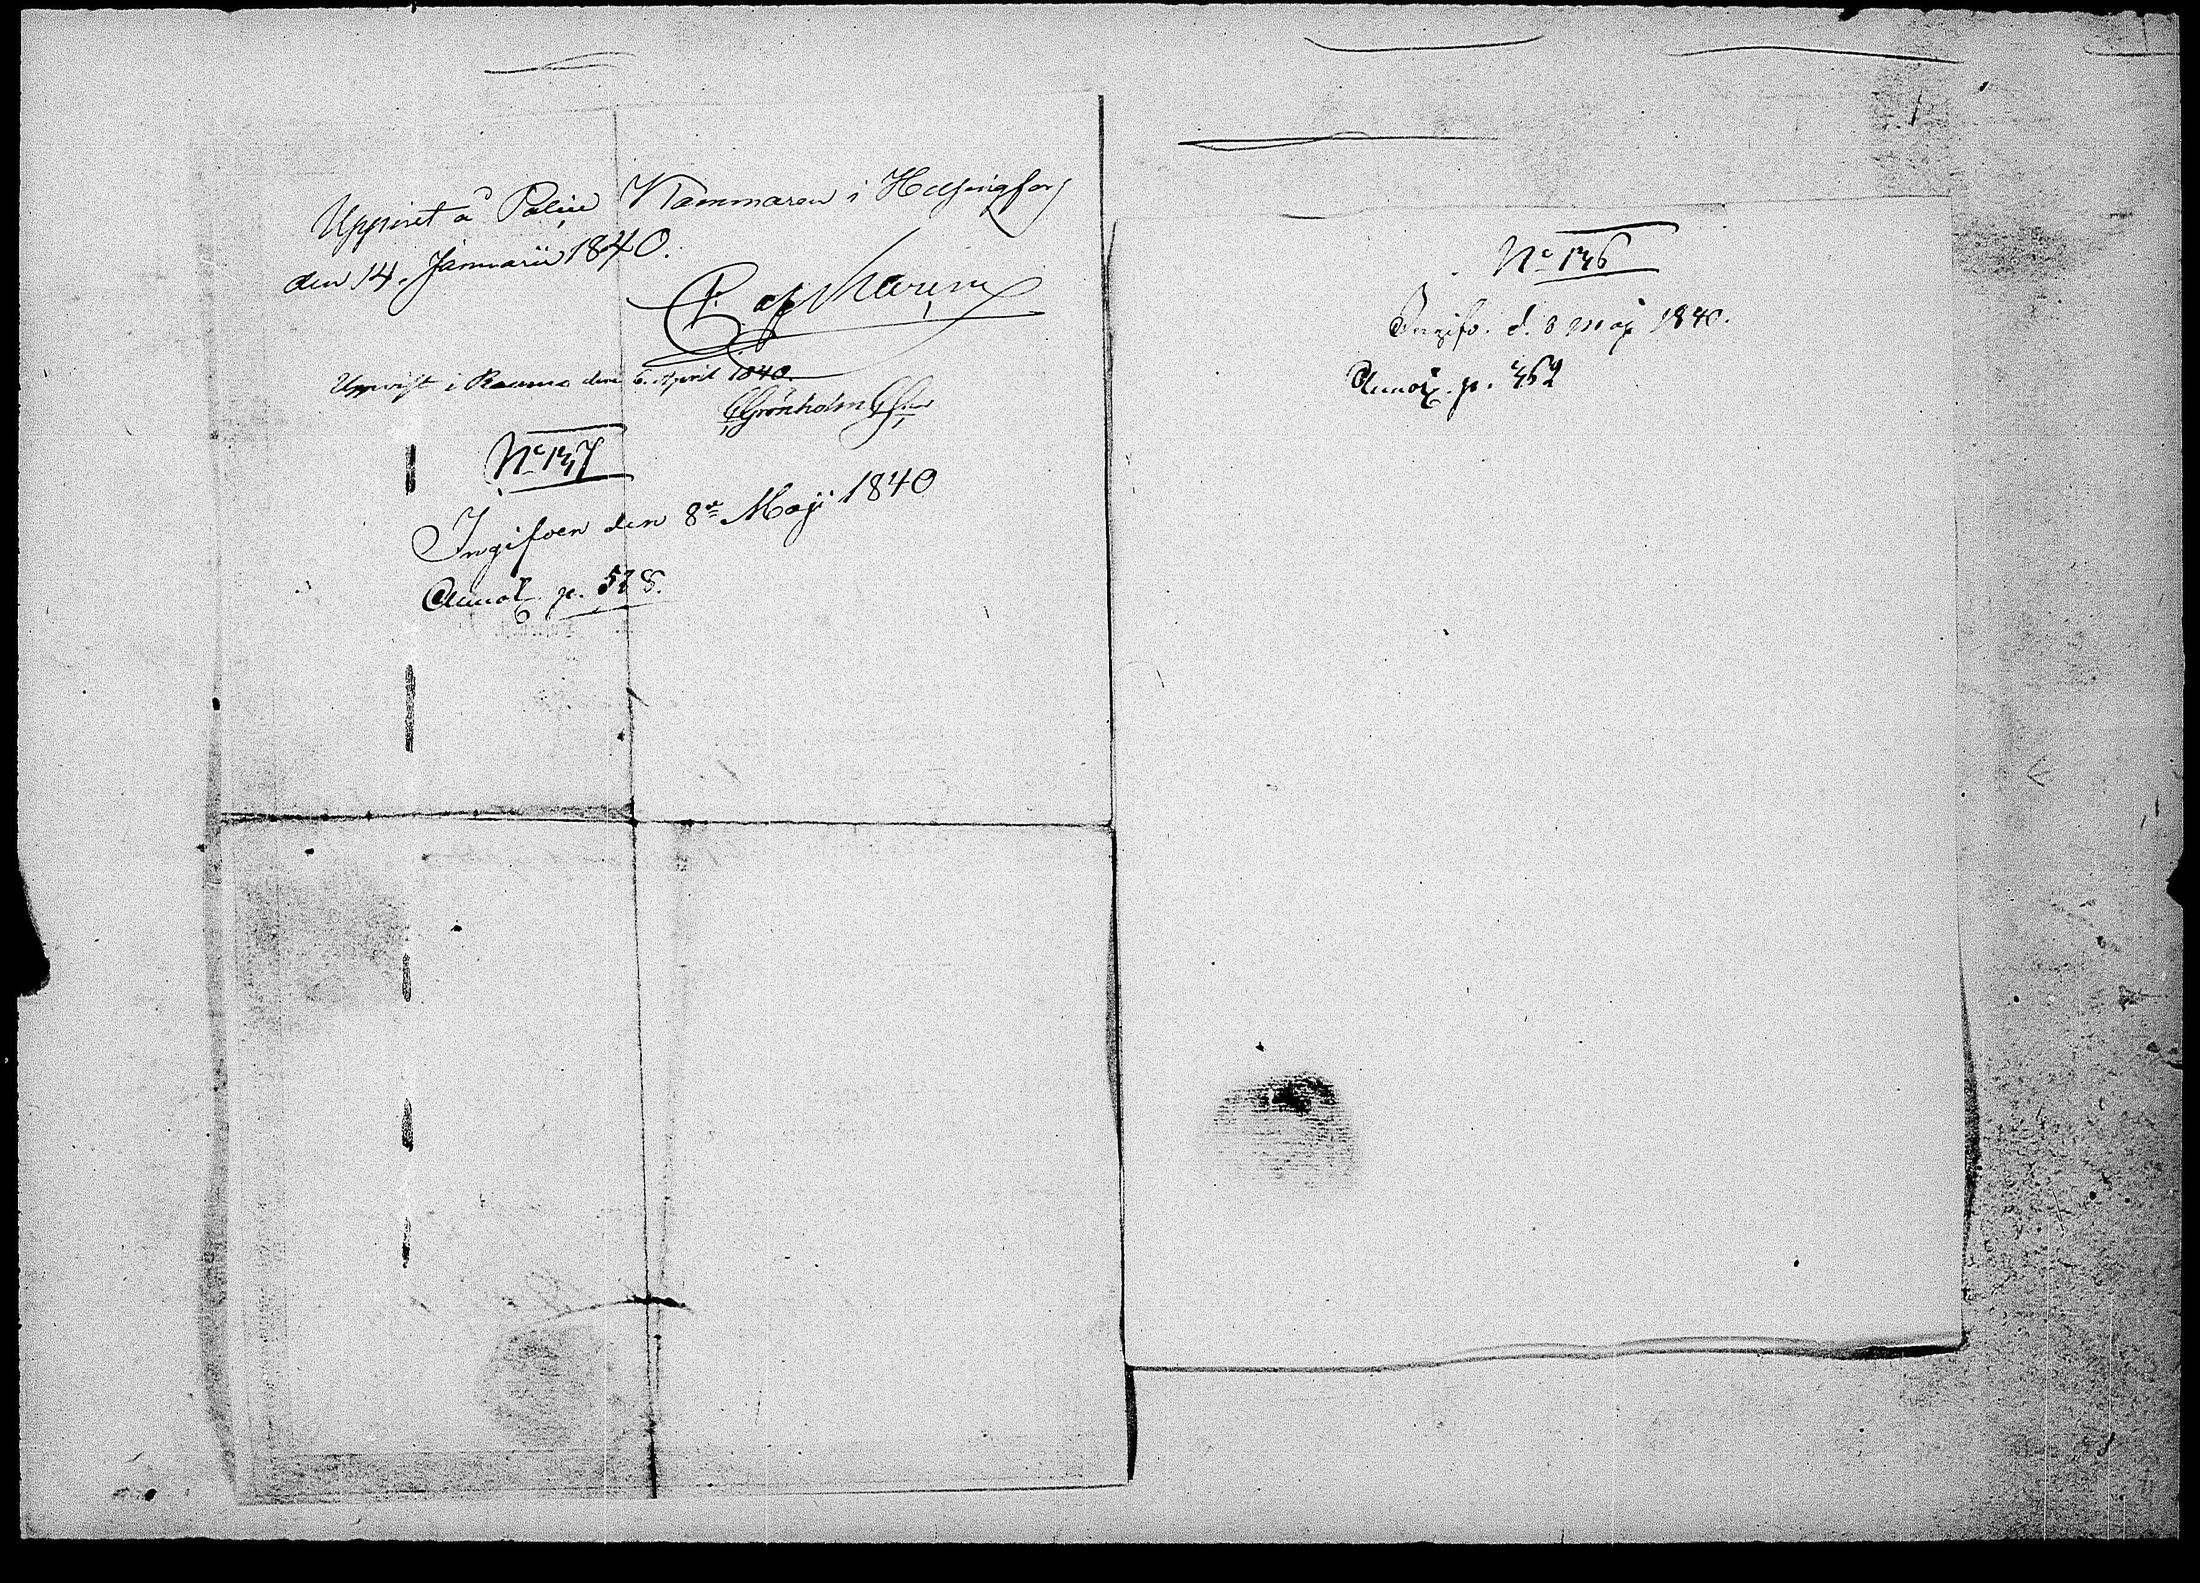 Uppvist å Police Kammaren i Helsingfors
den 14. Januarii 1840.
Uppvist i Raumo den 6. April 1840.
CGrönholm
No 137
Ingifven den 8de Maji 1840
Annot. p. 528.
No 136
Ingifv. d. 8 Maji 1840.
Annot. p. 362